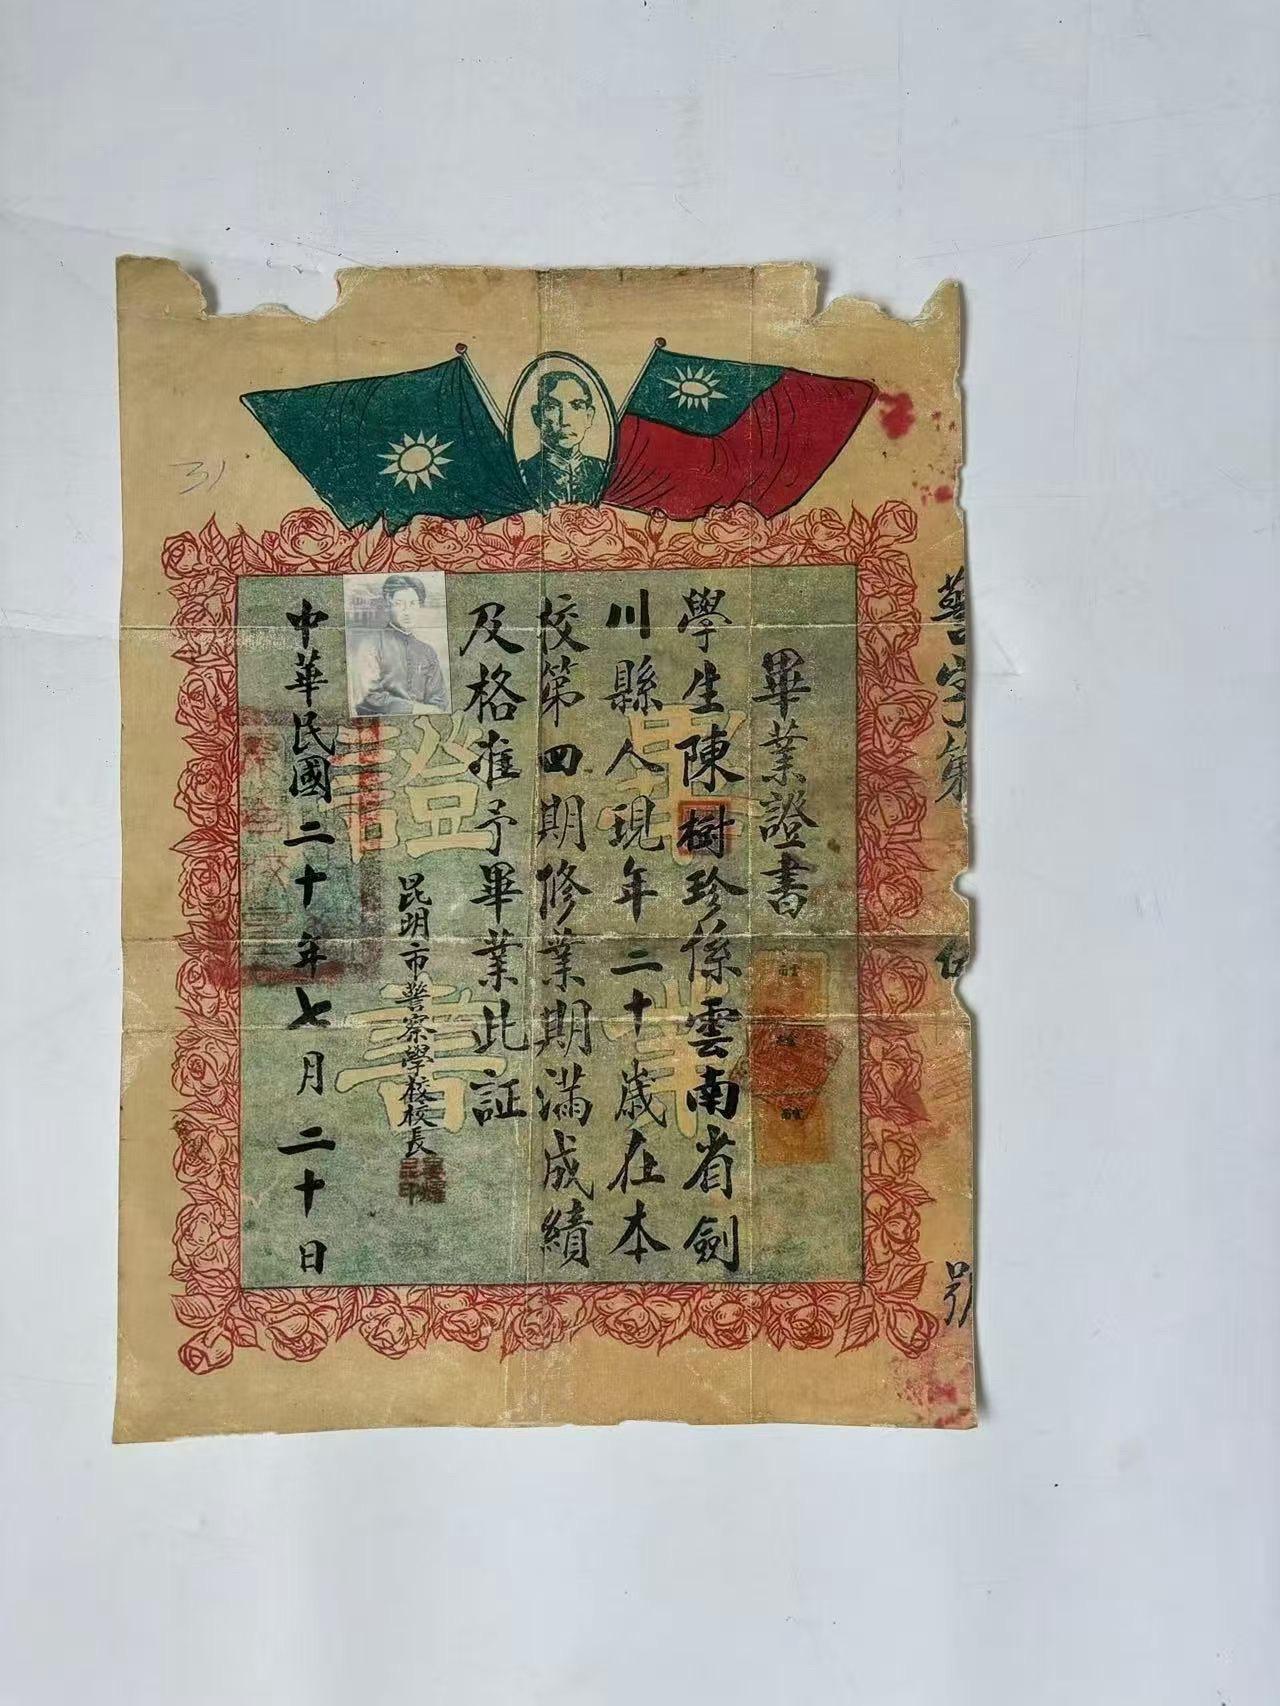 警字第 伍 號
畢業證書
學生陳樹珍係雲南省劍
川縣人現年二十歲在本
校第四期修業期滿成績
及格准予畢業此証
昆明市警察學校校長
中華民國二十年七月二十日
畢業
證書
31